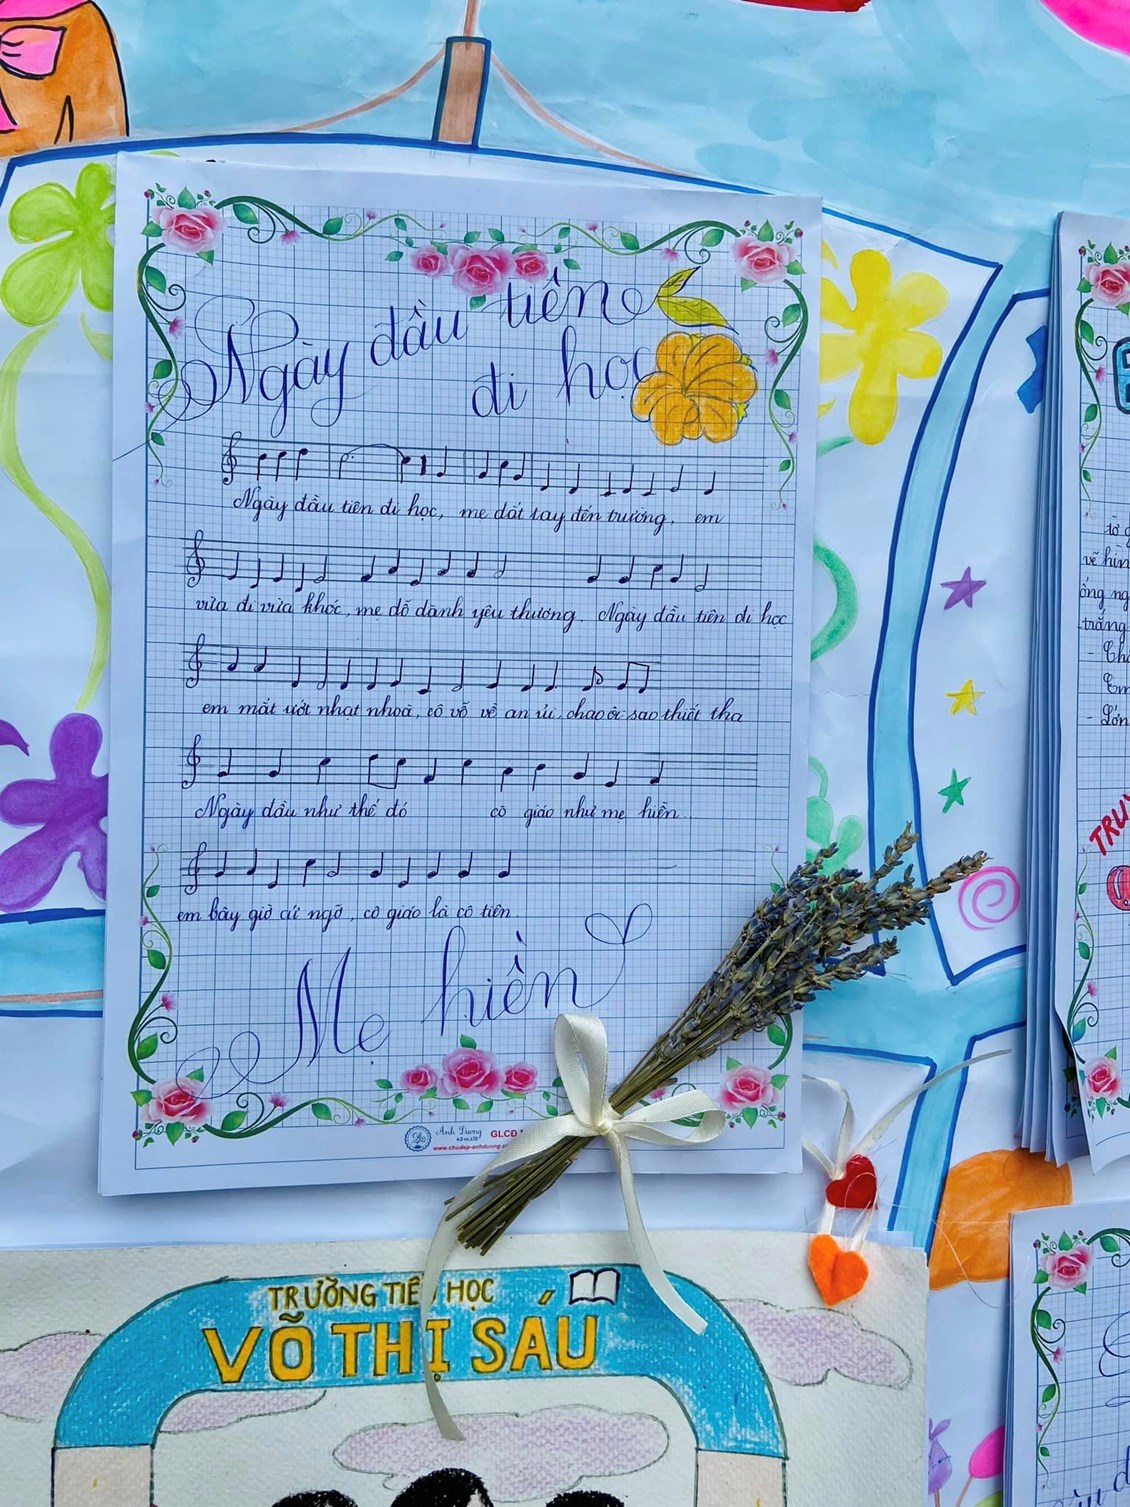 Ngày đầu tiên
đi học
Ngày đầu tiên đi học, mẹ dắt tay đến trường, em
vừa đi vừa khóc, mẹ dỗ dành yêu thương. Ngày đầu tiên đi học
em mắt ướt nhạt nhoà, cô vỗ về an ủi chao ôi sao thiết tha
Ngày đầu như thế đó cô giáo như mẹ hiền...
em bây giờ cứ ngỡ, cô giáo là cô tiên.
Mẹ hiền
Anh Dương
GLCD
TRƯỜNG TIỂ HỌC
VÕ THỊ SÁU
vẽ hìn
ông ng
trắng
- Chả
Em
- Lớn
TRUY